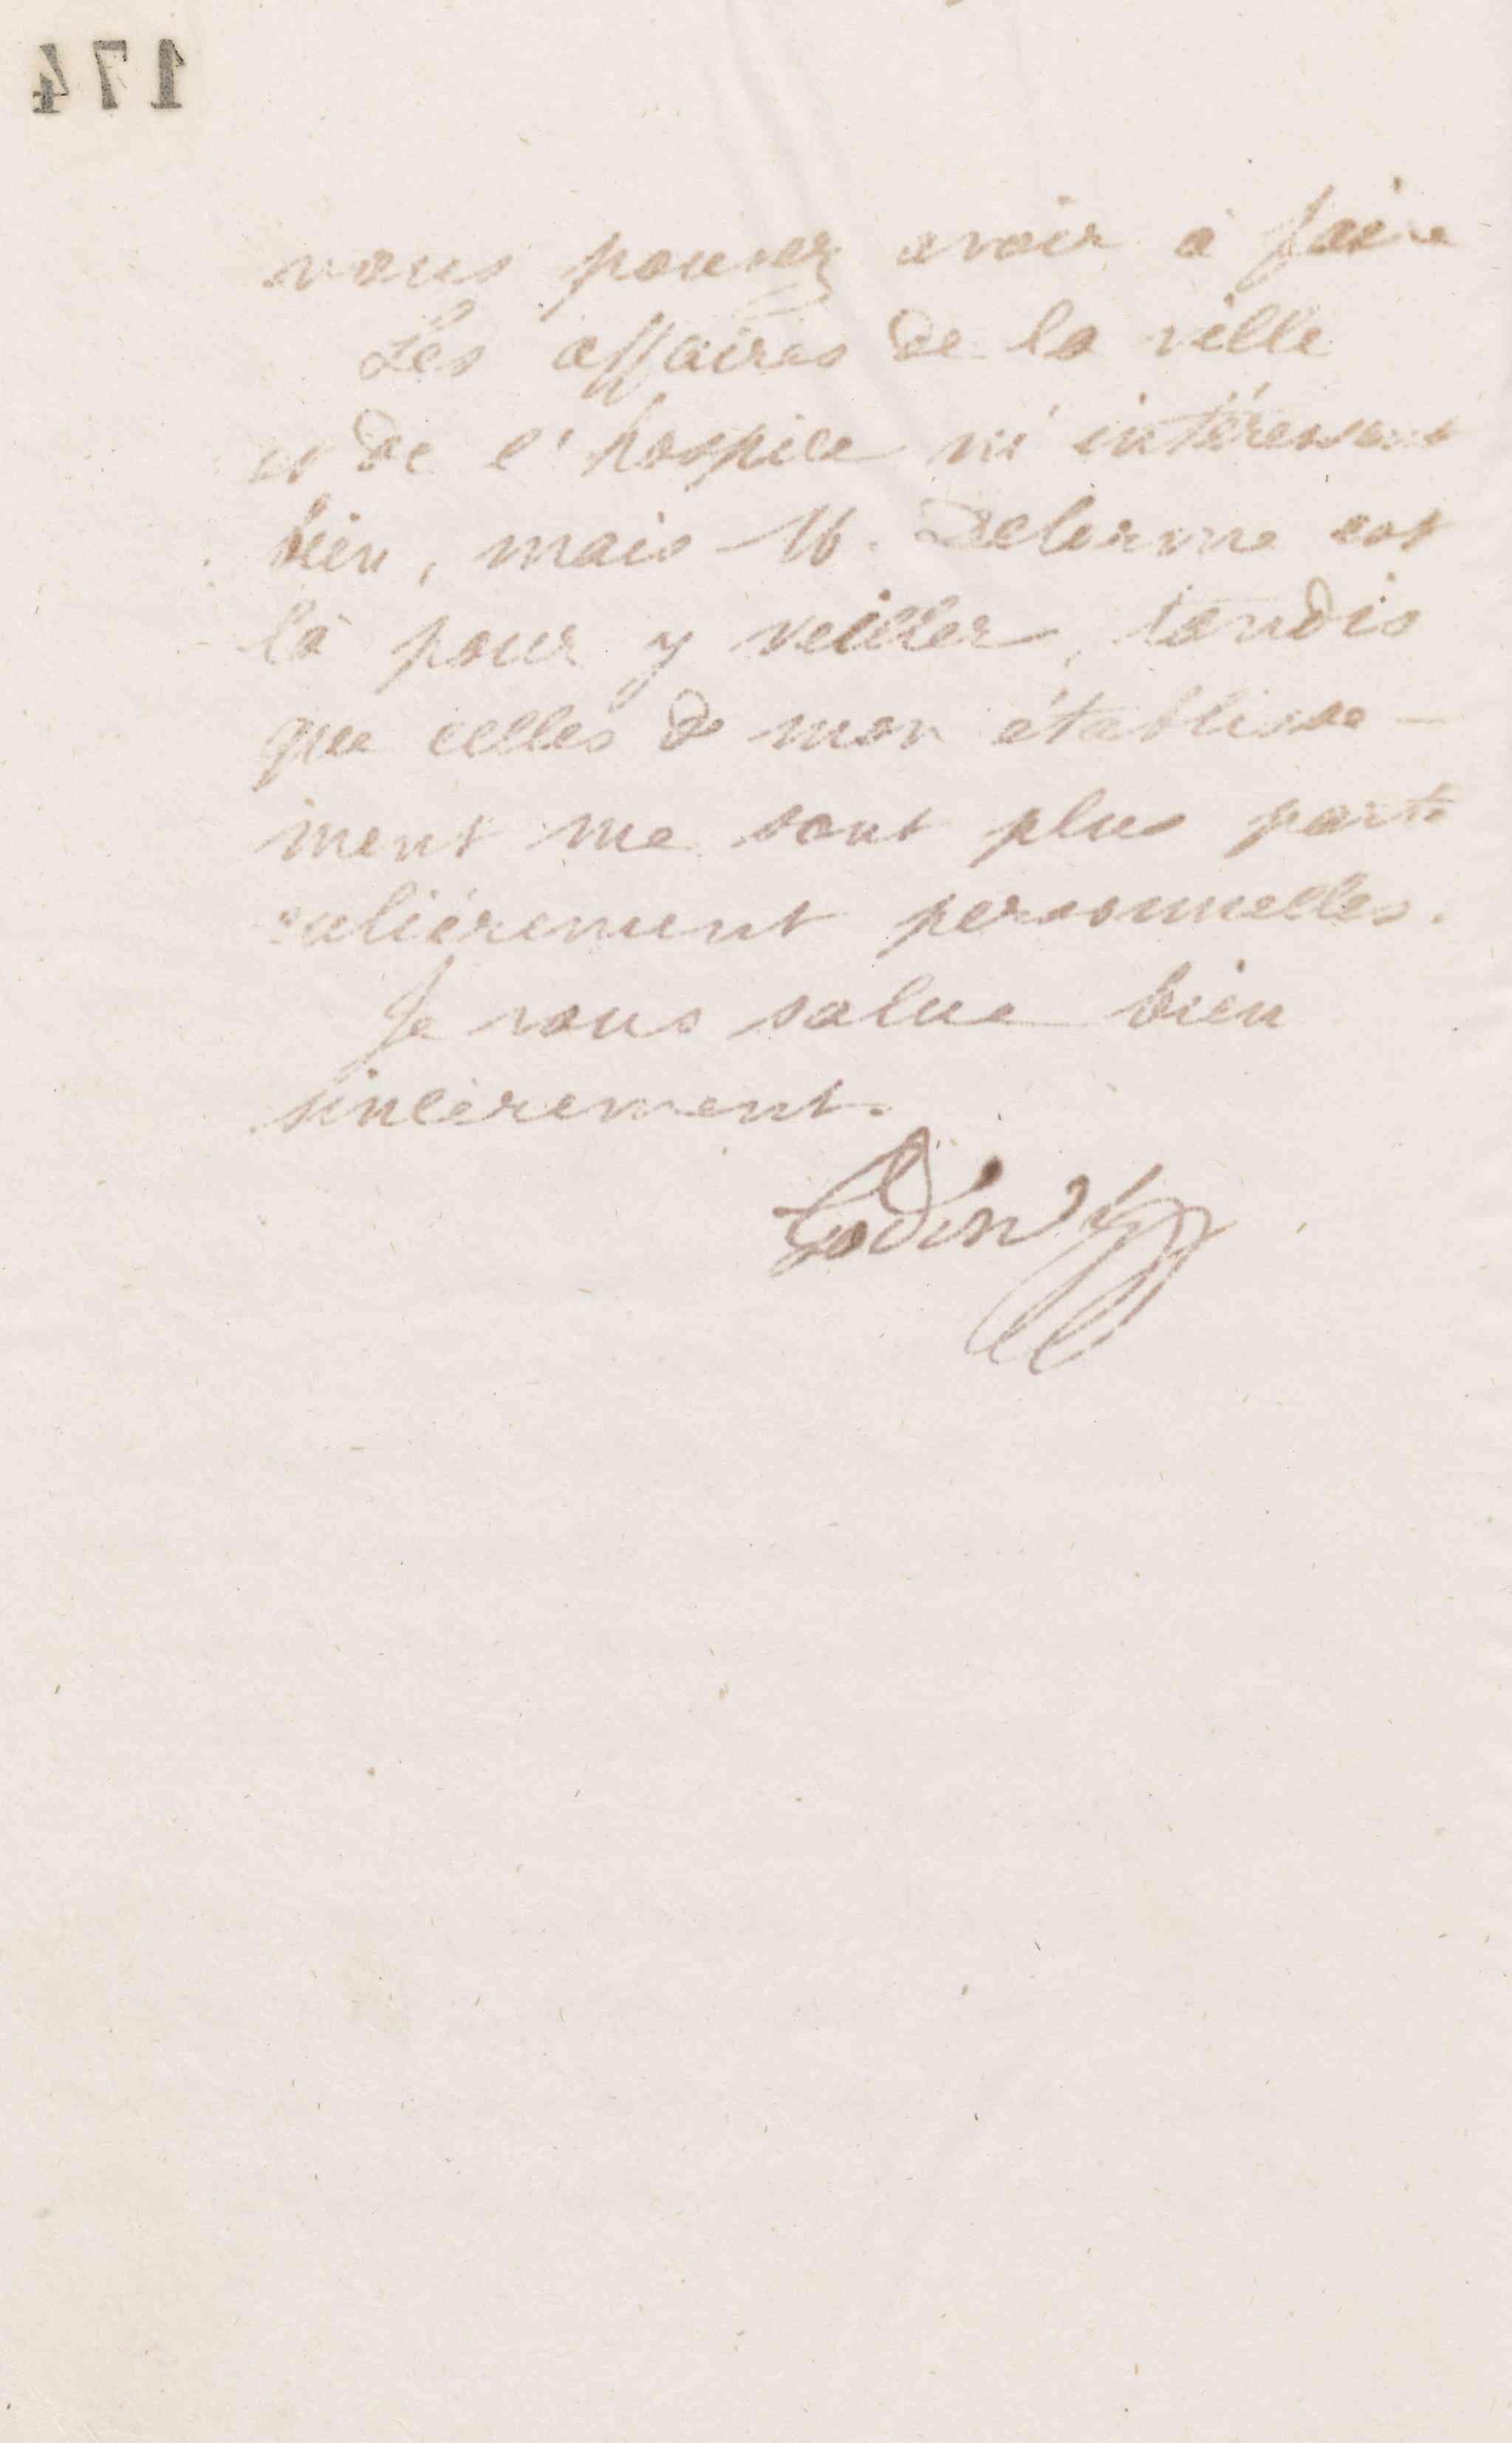 174
vous pouvez avoir à faire
Les affaires de la ville
et de l'hospice m'intéressent
bien, mais M. Delorme est
là pour y veiller, tandis
que celles de mon établisse-
ment me sont plus parti
culièrement personnelles.
Je vous salue bien
sincèrement.
Godin